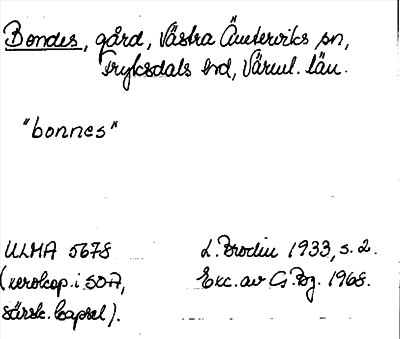 Bondes, gård, Västra Ämterviks sn,
Fryksdals hd, Värml. län.
"bonnes"
ULMA 5678
L. Brodin 1933, s. 2.
(xerokop. i SOA,
Exc. av G. Bg. 1968.
särsk. kapsel).